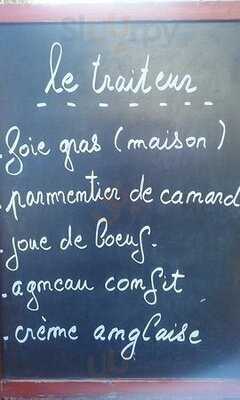 le traiteur
. foie gras (maison)
. parmentier de canard
. joue de boeuf.
. agneau confit
. crème anglaise